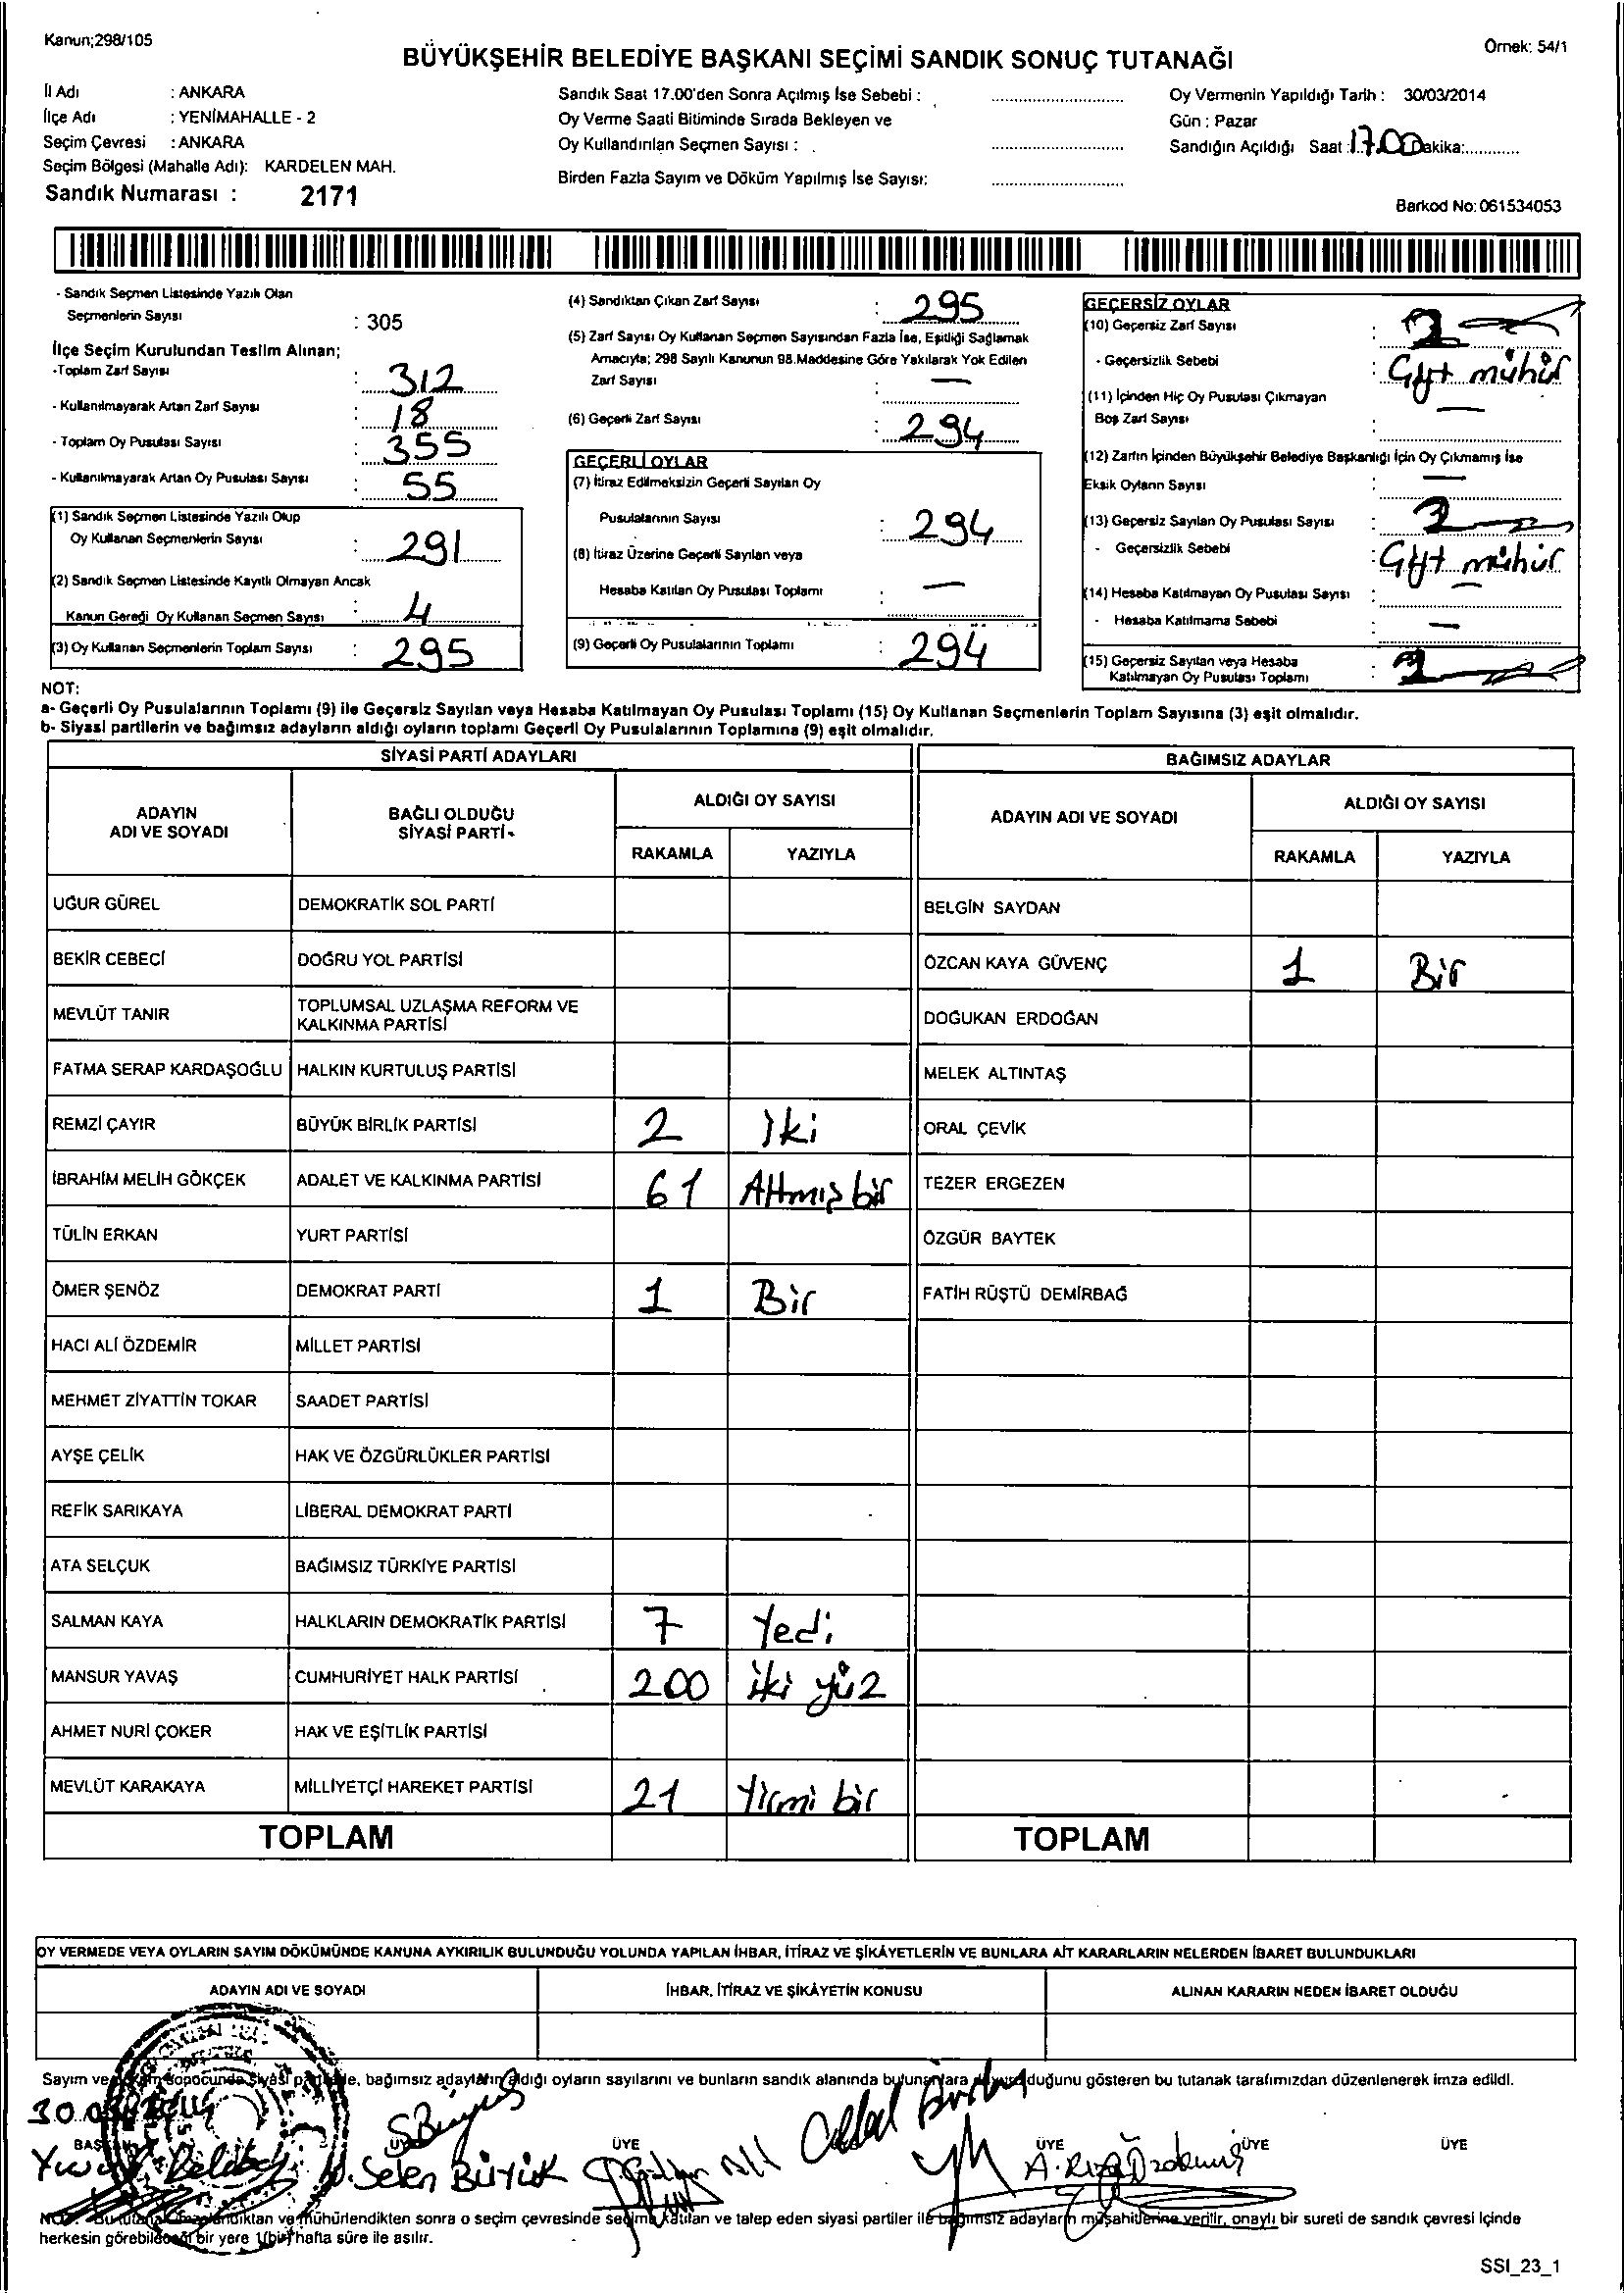 Kanun;298/105
Örnek: 54/1
BÜYÜKŞEHİR BELEDİYE BAŞKANI SEÇİMİ SANDIK SONUÇ TUTANAĞI
İl Adı : ANKARA
İlçe Adı : YENİMAHALLE - 2
Seçim Çevresi : ANKARA
Seçim Bölgesi (Mahalle Adı): KARDELEN MAH.
Sandık Numarası : 2171
Sandık Saat 17.00'den Sonra Açılmış İse Sebebi :
Oy Verme Saati Bitiminde Sırada Bekleyen ve
Oy Kullandırılan Seçmen Sayısı :
Birden Fazla Sayım ve Döküm Yapılmış İse Sayısı:
Oy Vermenin Yapıldığı Tarih : 30/03/2014
Gün : Pazar
Sandığın Açıldığı Saat : 17.00 Dakika:
Barkod No:061534053
- Sandık Seçmen Listesinde Yazılı Olan
Seçmenlerin Sayısı : 305
İlçe Seçim Kurulundan Teslim Alınan;
-Toplam Zarf Sayısı : 312
- Kullanılmayarak Artan Zarf Sayısı : 18
- Toplam Oy Pusulası Sayısı : 355
- Kullanılmayarak Artan Oy Pusulası Sayısı : 55
(1) Sandık Seçmen Listesinde Yazılı Olup
Oy Kullanan Seçmenlerin Sayısı : 291
(2) Sandık Seçmen Listesinde Kayıtlı Olmayan Ancak
Kanun Gereği Oy Kullanan Seçmen Sayısı : 4
(3) Oy Kullanan Seçmenlerin Toplam Sayısı : 295
(4) Sandıktan Çıkan Zarf Sayısı : 295
(5) Zarf Sayısı Oy Kullanan Seçmen Sayısından Fazla İse, Eşitliği Sağlamak
Amacıyla; 298 Sayılı Kanunun 98.Maddesine Göre Yakılarak Yok Edilen
Zarf Sayısı : —
(6) Geçerli Zarf Sayısı : 294
GEÇERLİ OYLAR
(7) İtiraz Edilmeksizin Geçerli Sayılan Oy
Pusulalarının Sayısı : 294
(8) İtiraz Üzerine Geçerli Sayılan veya
Hesaba Katılan Oy Pusulası Toplamı : —
(9) Geçerli Oy Pusulalarının Toplamı : 294
GEÇERSİZ OYLAR
(10) Geçersiz Zarf Sayısı :
- Geçersizlik Sebebi : Çift mühür
(11) İçinden Hiç Oy Pusulası Çıkmayan
Boş Zarf Sayısı : —
(12) Zarfın İçinden Büyükşehir Belediye Başkanlığı İçin Oy Çıkmamış İse
Eksik Oyların Sayısı : —
(13) Geçersiz Sayılan Oy Pusulası Sayısı :
- Geçersizlik Sebebi : Çift mühür
(14) Hesaba Katılmayan Oy Pusulası Sayısı : —
- Hesaba Katılmama Sebebi : —
(15) Geçersiz Sayılan veya Hesaba
Katılmayan Oy Pusulası Toplamı :
NOT:
a- Geçerli Oy Pusulalarının Toplamı (9) ile Geçersiz Sayılan veya Hesaba Katılmayan Oy Pusulası Toplamı (15) Oy Kullanan Seçmenlerin Toplam Sayısına (3) eşit olmalıdır.
b- Siyasi partilerin ve bağımsız adayların aldığı oyların toplamı Geçerli Oy Pusulalarının Toplamına (9) eşit olmalıdır.
SİYASİ PARTİ ADAYLARI
BAĞIMSIZ ADAYLAR
ADAYIN ADI VE SOYADI
BAĞLI OLDUĞU SİYASİ PARTİ
ALDIĞI OY SAYISI
RAKAMLA YAZIYLA
ADAYIN ADI VE SOYADI
ALDIĞI OY SAYISI
RAKAMLA YAZIYLA
UĞUR GÜREL DEMOKRATİK SOL PARTİ BELGİN SAYDAN
BEKİR CEBECİ DOĞRU YOL PARTİSİ ÖZCAN KAYA GÜVENÇ 1 Bir
MEVLÜT TANIR TOPLUMSAL UZLAŞMA REFORM VE KALKINMA PARTİSİ DOĞUKAN ERDOĞAN
FATMA SERAP KARDAŞOĞLU HALKIN KURTULUŞ PARTİSİ MELEK ALTINTAŞ
REMZİ ÇAYIR BÜYÜK BİRLİK PARTİSİ 2 İki ORAL ÇEVİK
İBRAHİM MELİH GÖKÇEK ADALET VE KALKINMA PARTİSİ 61 Altmış bir TEZER ERGEZEN
TÜLİN ERKAN YURT PARTİSİ ÖZGÜR BAYTEK
ÖMER ŞENÖZ DEMOKRAT PARTİ 1 Bir FATİH RÜŞTÜ DEMİRBAĞ
HACI ALİ ÖZDEMİR MİLLET PARTİSİ
MEHMET ZİYATTİN TOKAR SAADET PARTİSİ
AYŞE ÇELİK HAK VE ÖZGÜRLÜKLER PARTİSİ
REFİK SARIKAYA LİBERAL DEMOKRAT PARTİ
ATA SELÇUK BAĞIMSIZ TÜRKİYE PARTİSİ
SALMAN KAYA HALKLARIN DEMOKRATİK PARTİSİ 7 Yedi
MANSUR YAVAŞ CUMHURİYET HALK PARTİSİ 200 iki yüz
AHMET NURİ ÇOKER HAK VE EŞİTLİK PARTİSİ
MEVLÜT KARAKAYA MİLLİYETÇİ HAREKET PARTİSİ 21 Yirmi bir
TOPLAM TOPLAM
OY VERMEDE VEYA OYLARIN SAYIM DÖKÜMÜNDE KANUNA AYKIRILIK BULUNDUĞU YOLUNDA YAPILAN İHBAR, İTİRAZ VE ŞİKÂYETLERİN VE BUNLARA AİT KARARLARIN NELERDEN İBARET BULUNDUKLARI
ADAYIN ADI VE SOYADI İHBAR, İTİRAZ VE ŞİKÂYETİN KONUSU ALINAN KARARIN NEDEN İBARET OLDUĞU
Sayım ve bağımsız adayların aldığı oyların sayılarını ve bunların sandık alanında bulunanlara duğunu gösteren bu tutanak tarafımızdan düzenlenerek imza edildi.
ÜYE ÜYE ÜYE ÜYE
Selen BÜYÜK
A. Rıza Özdemir
sonra o seçim çevresinde seçime katılan ve talep eden siyasi partiler ile bağımsız adayların müşahitlerine verilir, onaylı bir sureti de sandık çevresi içinde
herkesin görebileceği bir yere 1(bir) hafta süre ile asılır.
SSI_23_1